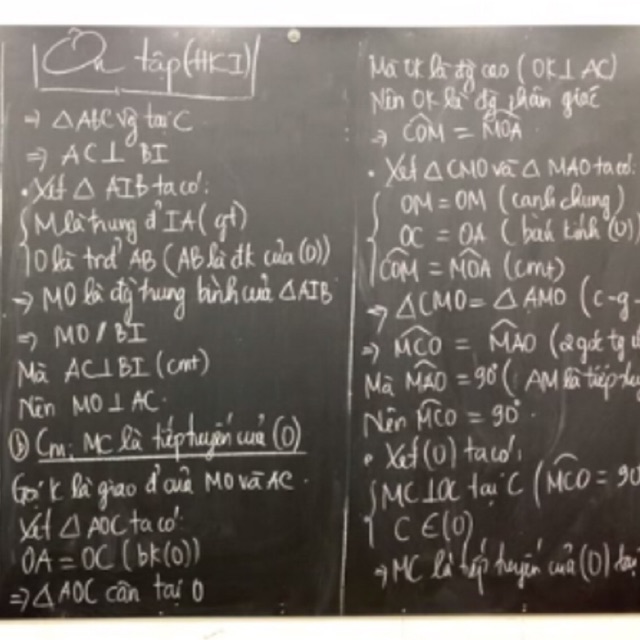 Ôn tập (HKI)
⇒ △ABC vg tại C
⇒ AC ⊥ BI
• Xét △ AIB ta có:
M là trung đ' IA (gt)
O là trđ' AB (AB là đk của (O))
⇒ MO là đg trung bình của △AIB
⇒ MO // BI
Mà AC ⊥ BI (cmt)
Nên MO ⊥ AC.
b) Cm: MC là tiếp tuyến của (O)
Gọi K là giao đ' của MO và AC.
Xét △ AOC ta có:
OA = OC (bk(O))
⇒ △ AOC cân tại O
Mà OK là đg cao (OK ⊥ AC)
Nên OK là đg phân giác
⇒ \widehat{COM} = \widehat{MOA}
• Xét △ CMO và △ MAO ta có:
OM = OM (cạnh chung)
OC = OA (bán kính (O))
\widehat{COM} = \widehat{MOA} (cmt)
⇒ △CMO = △ AMO (c-g
⇒ \widehat{MCO} = \widehat{MAO} (2 góc tg
Mà \widehat{MAO} = 90° (AM là tiếp
Nên \widehat{MCO} = 90°.
• Xét (O) ta có:
MC ⊥ OC tại C (\widehat{MCO} = 90
C ∈ (O)
⇒ MC là tiếp tuyến của (O)